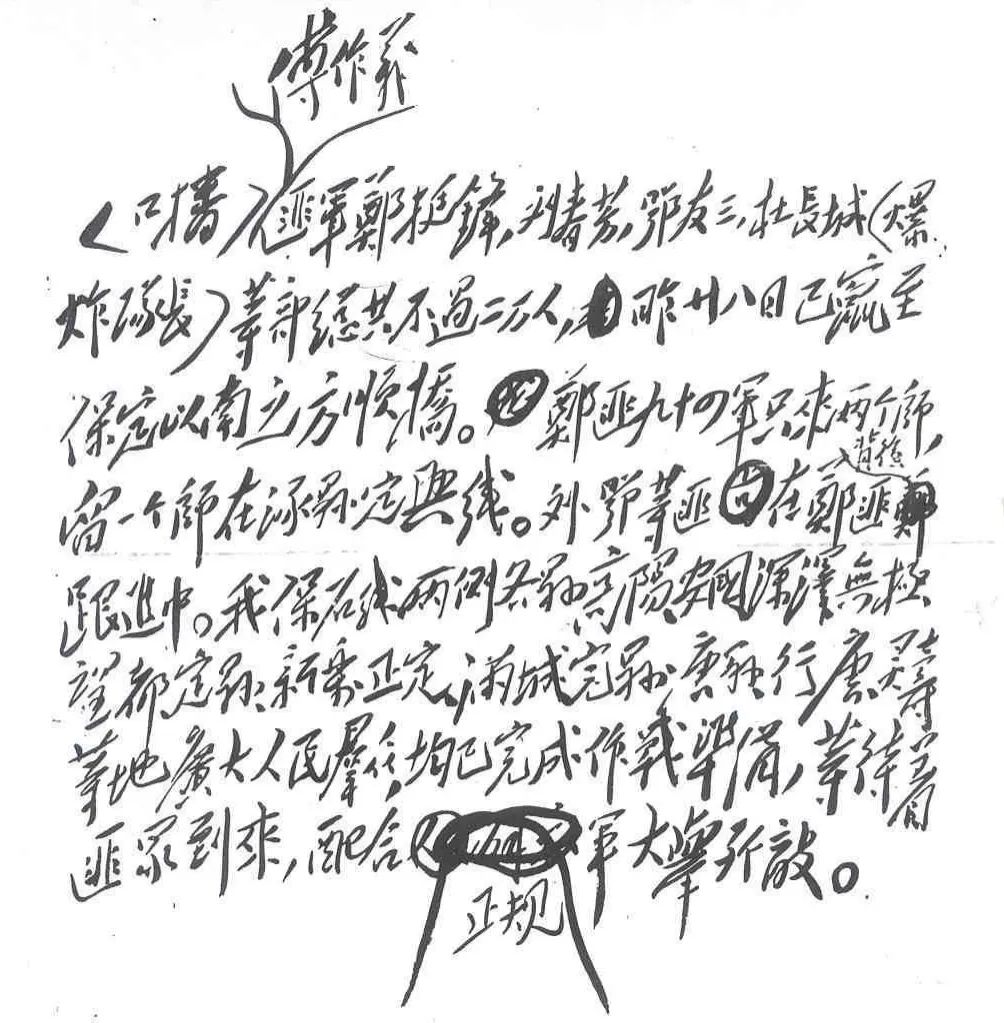 傅作義
(口播)匪軍鄭挺鋒,刘春芳,鄂友三,杜長城(爆
炸隊長)等部總共不過二万人,昨廿八日已竄至
保定以南之方順橋。鄭匪九十四軍只來兩个師,
背後
留一个師在涿縣定興线。刘鄂等匪在鄭匪
跟進中。我保石线兩側各縣高陽安國深澤無極
望都定縣新樂正定,滿城完縣唐縣行唐灵寿
等地廣大人民羣众,均已完成作戰準備,等待着
匪眾到來,配合軍大舉歼敵。
正规